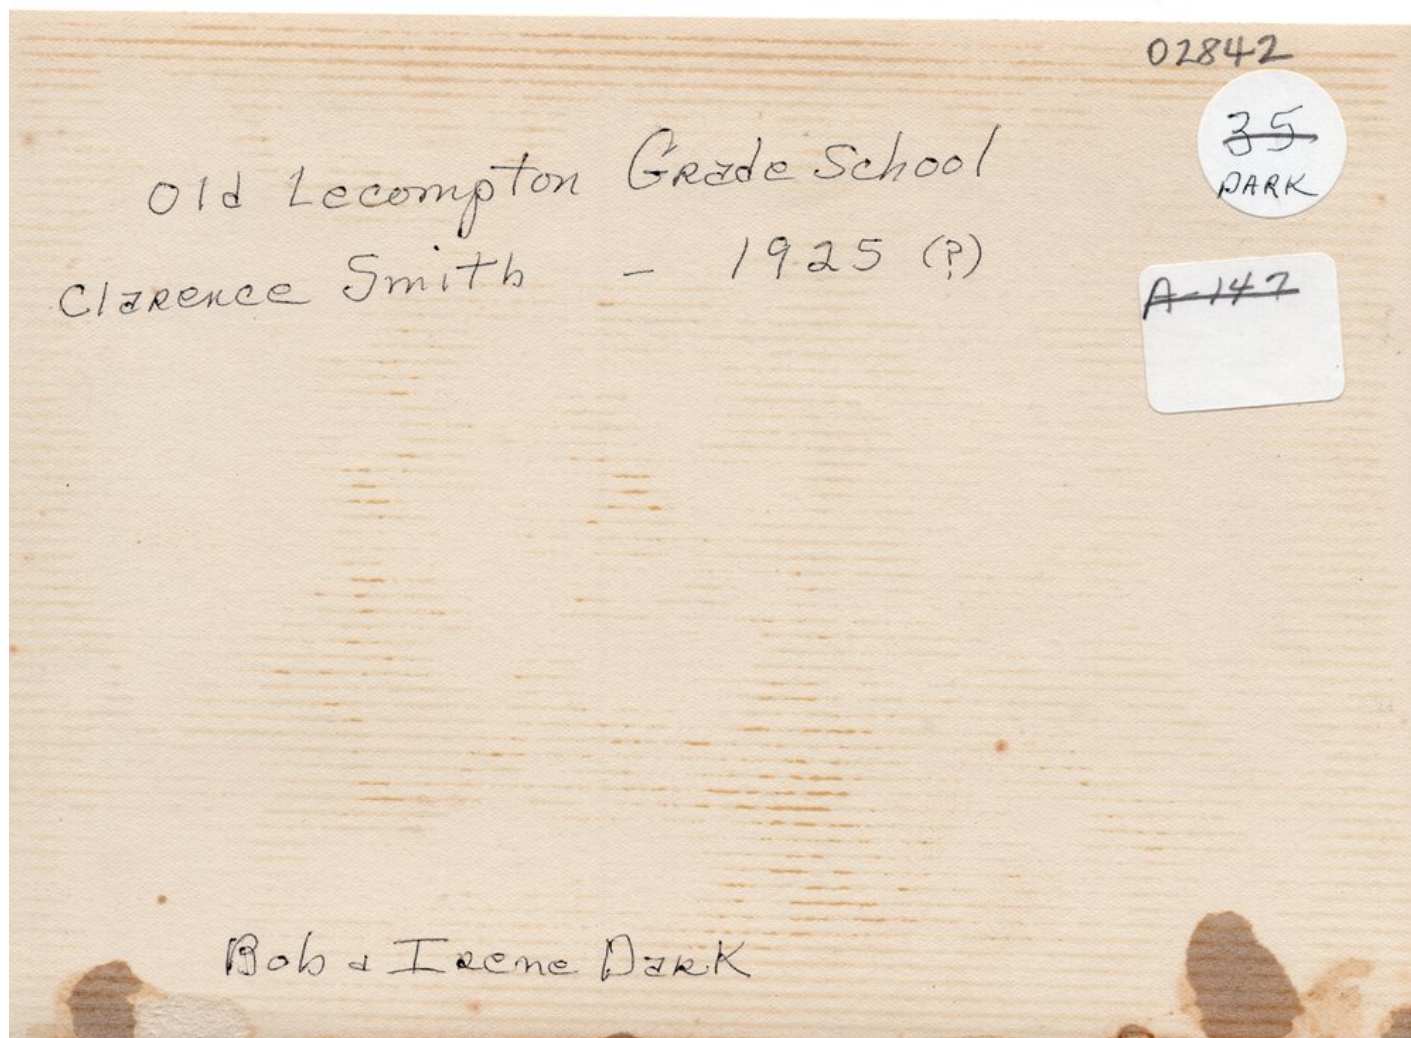 02842
35
DARK
Old Lecompton Grade School
Clarence Smith - 1925 (?)
A-147
Bob & Irene Dark